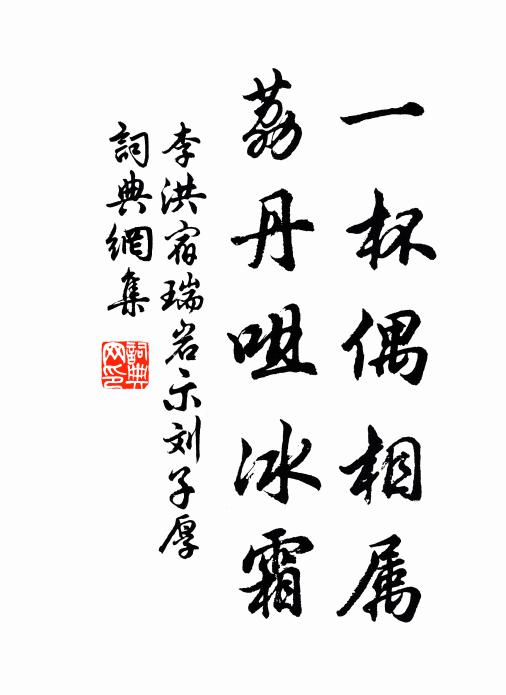 一杯偶相属
荔丹咀冰霜
李洪宿瑞岩示刘子厚
詞典網集
詞典網印